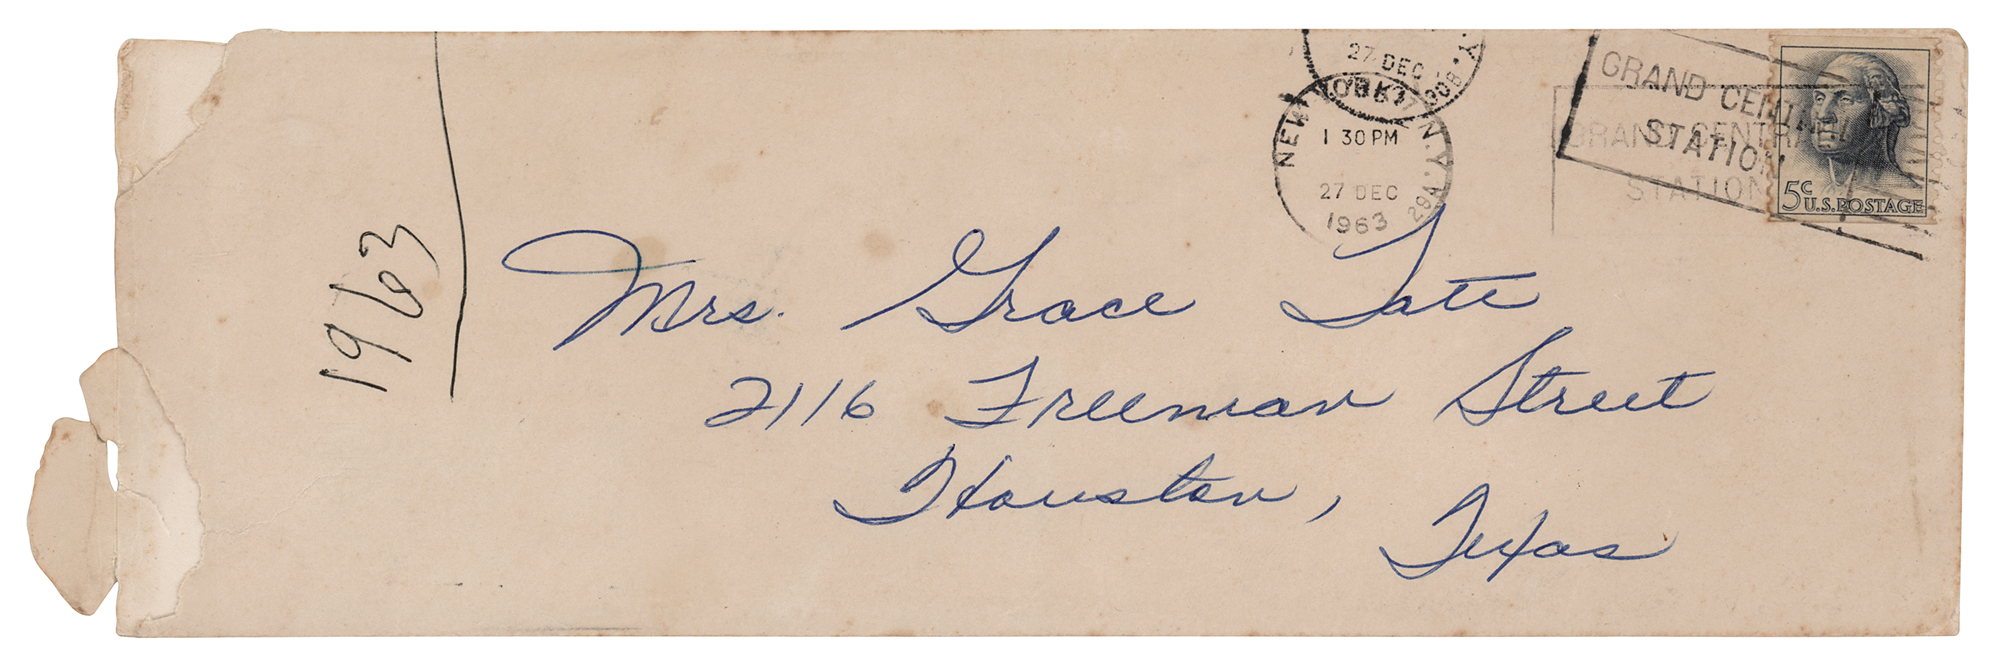 27 DEC
NEW YORK, N.Y.
1 30 PM
27 DEC
1963
29A
GRAND CENTRAL
STATION
GRAND CENTRAL
STATION
5c
U.S. POSTAGE
1963
Mrs. Grace Tate
2116 Freeman Street
Houston, Texas